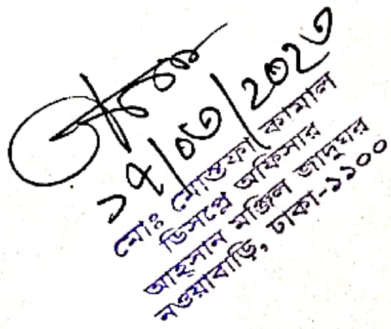 ১৭/০৩/২০২৩
মোঃ মোস্তফা কামাল
ডিসপ্লে অফিসার
আহসান মঞ্জিল জাদুঘর
নওয়াবাড়ি, ঢাকা-১১০০